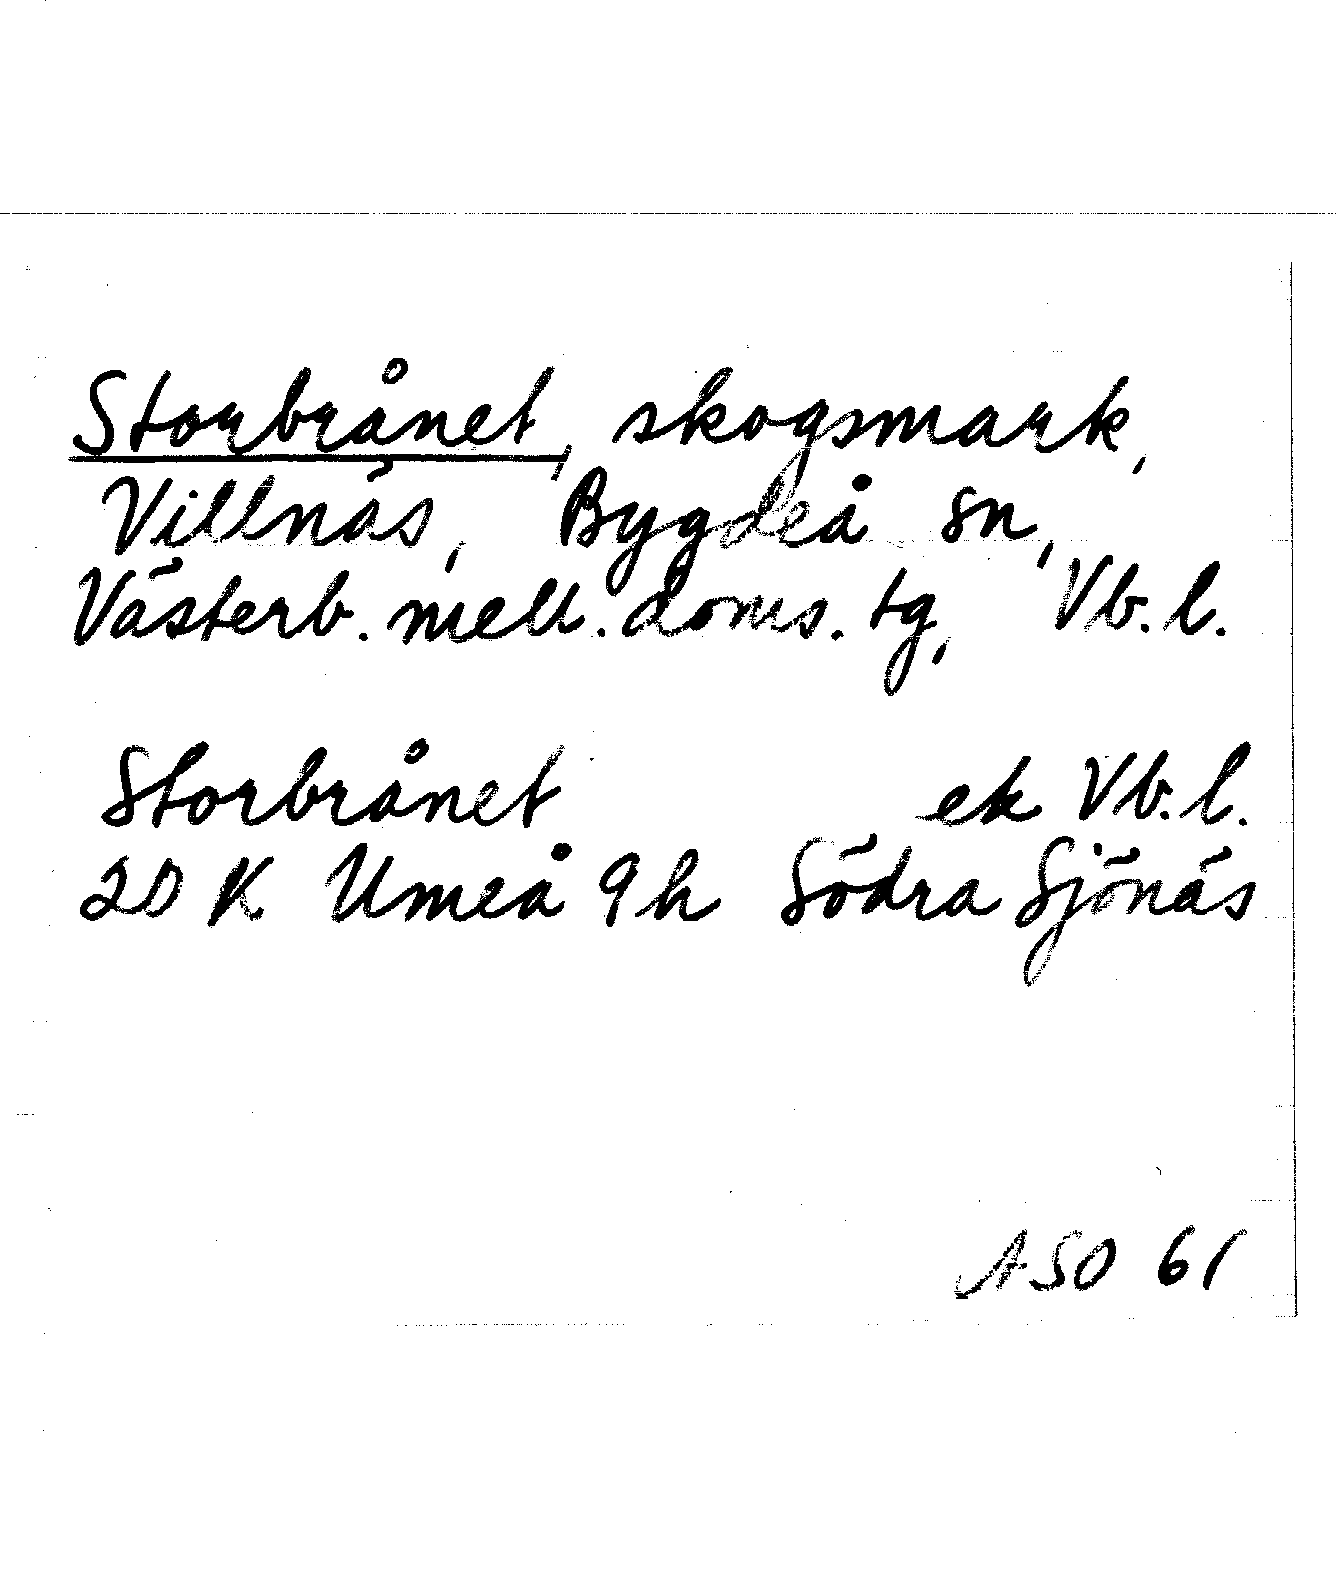 Storbrånet, skogsmark,
Villnäs, Bygdeå sn,
Västerb. mell. doms. tg, Vb. l.
Storbrånet ek Vb. l.
20 K Umeå 9 h Södra Sjönäs
ASO 61